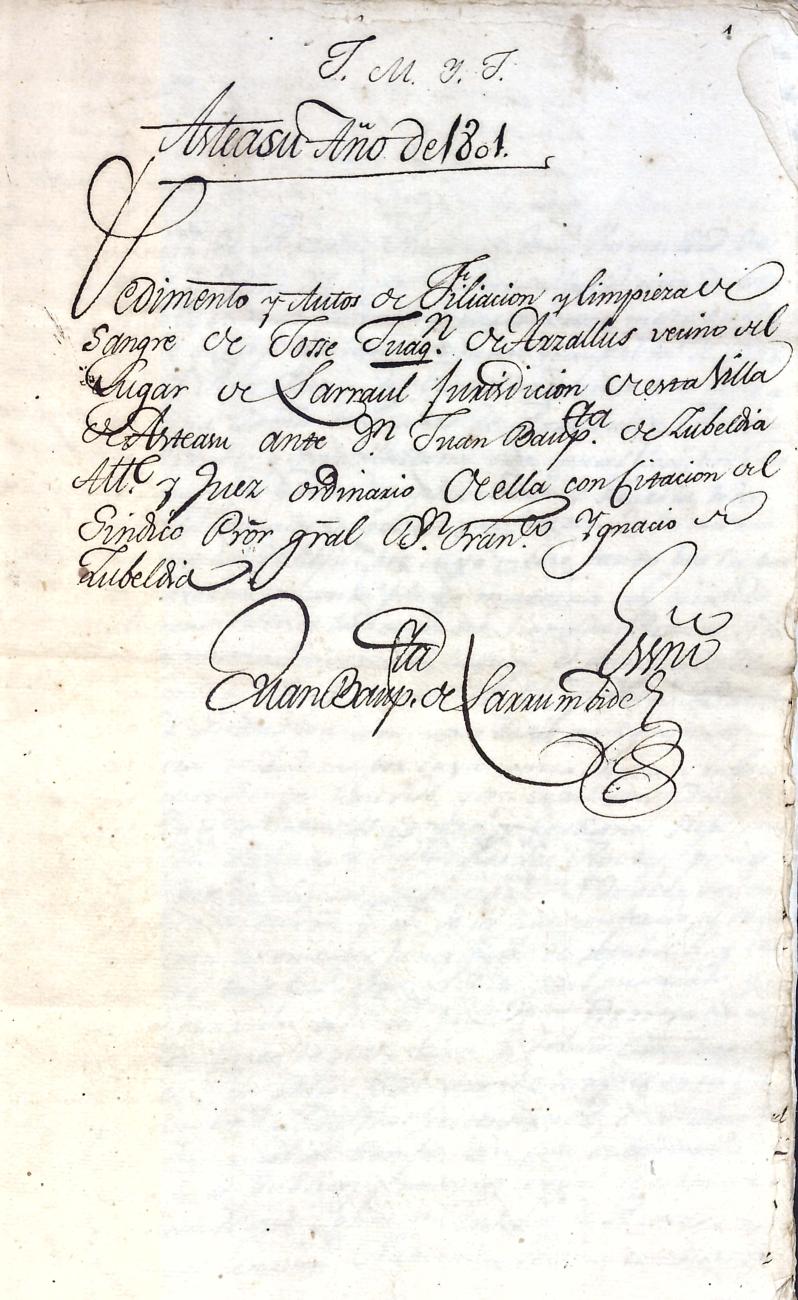 1
J. M. y J.
Asteasu Año de 1801.
Pedimento y Autos de Filiacion y limpieza de
Sangre de Josse Juaqn. de Arzallus vecino del
Lugar de Larraul Jurisdicion de esta Villa
de Asteasu ante Dn. Juan Baupta. de Zubeldia
Alle. y Juez ordinario de ella con Citacion del
Sindico Pror gral Dn. Franco. Ygnacio de
Zubeldia
Essno
Juan Baupta. de Larrumbide